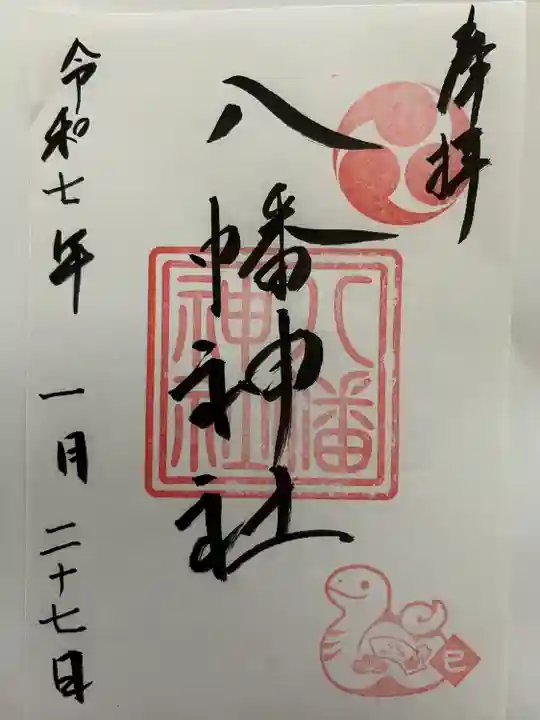 奉拝
八幡神社
八幡
神社
令和七年 一月二十七日
巳